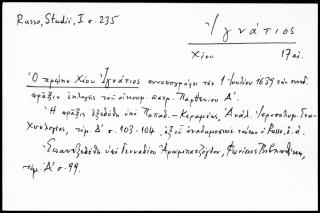 Russo, Studii, I σ. 235
Ἰγνάτιος
Χίου 17 αἰ.
Ὁ πρώην Χίου Ἰγνάτιος συνυπογράφει τὴν 1 Ἰουλίου 1639 τὴν συνοδ.
πρᾶξιν ἐκλογῆς τοῦ οἰκουμ. πατρ. Παρθενίου Α΄.
Ἡ πρᾶξις ἐξεδόθη ὑπὸ Παπαδ.-Κεραμέως, Ἀνάλ. Ἱεροσολυμ. Στα-
χυολογίας, τόμ. Δ΄ σ. 103-104, ἐξ οὗ ἀναδημοσιεύει ταύτην ὁ Russo, ἔ.ἀ.
Ἐπανεξεδόθη ὑπὸ Γενναδίου Ἀραμπατζόγλου, Φωτίειος Βιβλιοθήκη,
τόμ. Α΄ σ. 99.